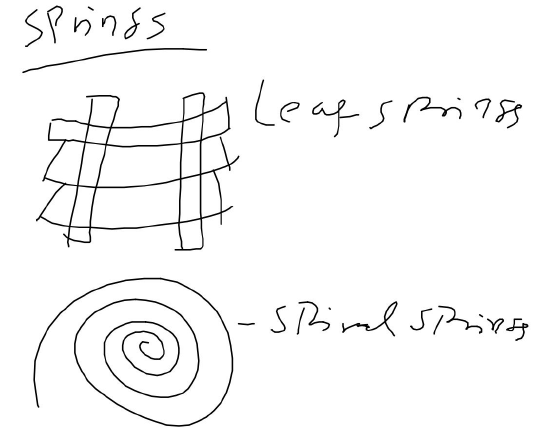 Springs
Leaf springs
- Spiral springs